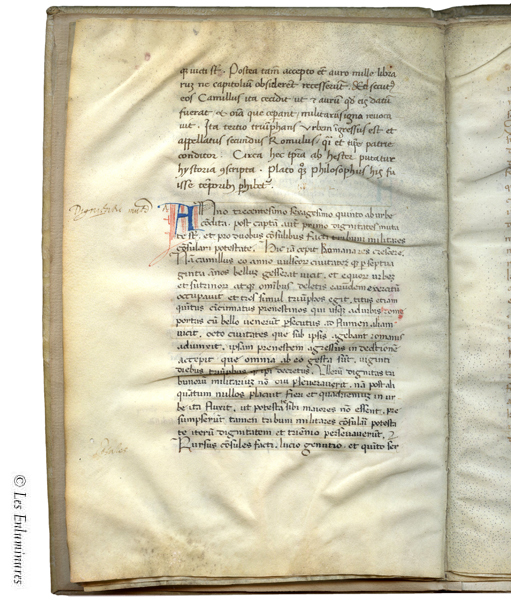 qͥ victi sᷓt. Postea tam̃ accepto et̃ auro mille libra
rūȝ ne capitoliū obsiderēt recesserunt. Sed secutꝯ
eos Camillus ita cecidit ut & aurū qd̄ eis datū
fuerat & oīa que ceperant militariū signa revoca
vit. Ita tertio triūphans urbem igressus est et
appellatus secundus Romulus, qͥ et ip̄e patrie
conditor. Circa hec tp̄a ab hester putatur
hystoria ɔscripta. Plato qͦꝫ philosophus his fu
isse tēporibꝫ phibet.
Dignitatū mutō
ANno trecentesimo sexagesimo quinto ab urbe
cōdita, post captā aūt primo dignitates muta
te sᷓt, et pro duobus cōsulibus facti tribuni militares
cōsulari potestate. Hic iā cepit Romana res crescere.
Nā camillus eo anno vulscorꝫ civitatē q̄ p septua
ginta ānos bellū gesserat vicit, et equorꝫ urbeȝ
et sutrinorꝫ atqꝫ omībus deletis earūdem exercitū
occupavit et tres simul triūphos egit, titus etiam
quīctus cīcinatus prenestinos qui usqꝫ ad urbis rome
portas cū bello venerūt psecutus, ad flumen aliam
vicit, octo civitates que sub ipsis agebant romanis
adiunxit, ipsam prenestem agressus in deditionē
accepit que omnia ab eo gesta sūt, viginti
diebus triūphus qꝫ ip̄i decretus. Verū dignitas tri
bunorū militariū nō diu pseveravit, nā post ali
quātum nullos placuit fieri et quadrieniū in ur
be ita fluxit, ut potestas ibi maiores nō essent, pre
sumpserūt tamen tribuni militares cōsulari potesta
te iterū dignitatem et trienio perseverarūt,
Rursus cōsules facti, lucio genutio, et quīto ser
© Les Enluminures